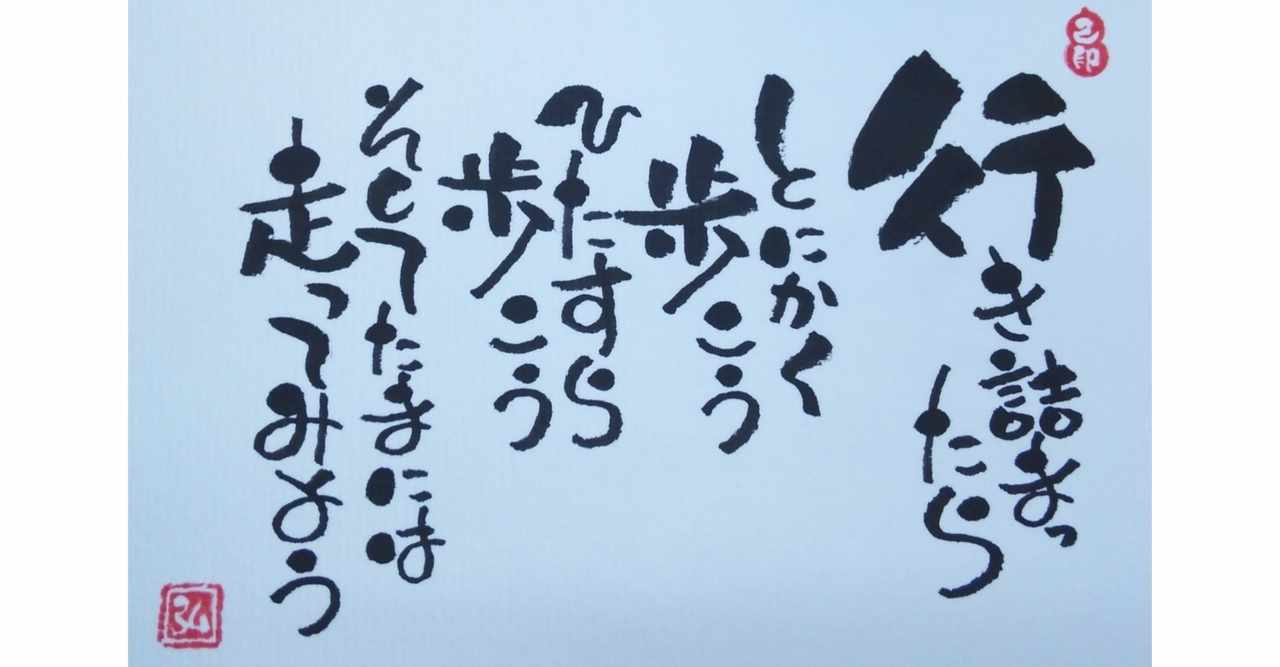 己印
行き詰まっ
たら
とにかく
歩こう
ひたすら
歩こう
そしてたまには
走ってみよう
弘